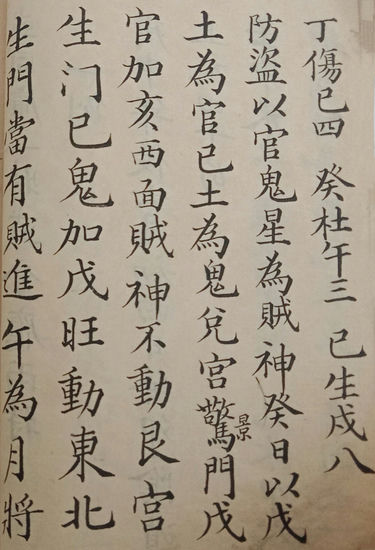 丁傷巳四 癸杜午三 已生戌八
防盜以官鬼星為賊神癸日以戊
土為官已土為鬼兌宮驚景門戊
官加亥西面賊神不動艮宮
生门已鬼加戊旺動東北
生門當有賊進午為月將